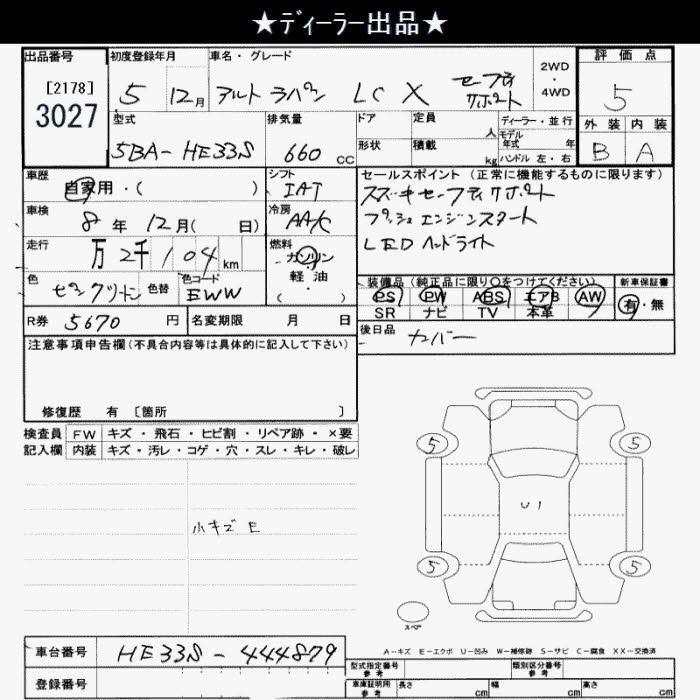 ★ディーラー出品★
出品番号 初度登録年月 車名・グレード 2WD・4WD 評価点
[2178]
3027
5 12月 アルト ラパン LC X セーフティ サポート 5
型式 排気量 ドア 定員 人 ディーラー・並行 外装 内装
5BA-HE33S 660 CC 形状 積載 kg モデル年式 年式 ハンドル 左・右 B A
車歴 自家用・( ) シフト IAT セールスポイント(正常に機能するものに限ります)
車検 8年 12月( 日) 冷房 AA/C スズキセーフティサポート
プッシュエンジンスタート
走行 万 2千 104 km 燃料 ガソリン・軽油 ( ) LEDヘッドライト
色 色替 色コード EWW 装備品(純正品に限り○をつけてください) 新車保証書
PS PW ABS エアB AW 有・無
SR ナビ TV 本革
R券 5670 円 名変期限 月 日 後日品 カバー
注意事項申告欄(不具合内容等は具体的に記入して下さい)
修復歴 有 [箇所 ]
検査員 FW キズ・飛石・ヒビ割・リペア跡・×要
記入欄 内装 キズ・汚レ・コゲ・穴・スレ・キレ・破レ
5 5
U1
小キズ E
5 5
スペア
車台番号 HE33S-444879
A-キズ E-エクボ U-凹み W-補修跡 S-サビ C-腐食 XX-交換済
型式指定番号 参考 類別区分番号 参考
登録番号 車庫証明用 参考 長さ cm 幅 cm 高さ cm